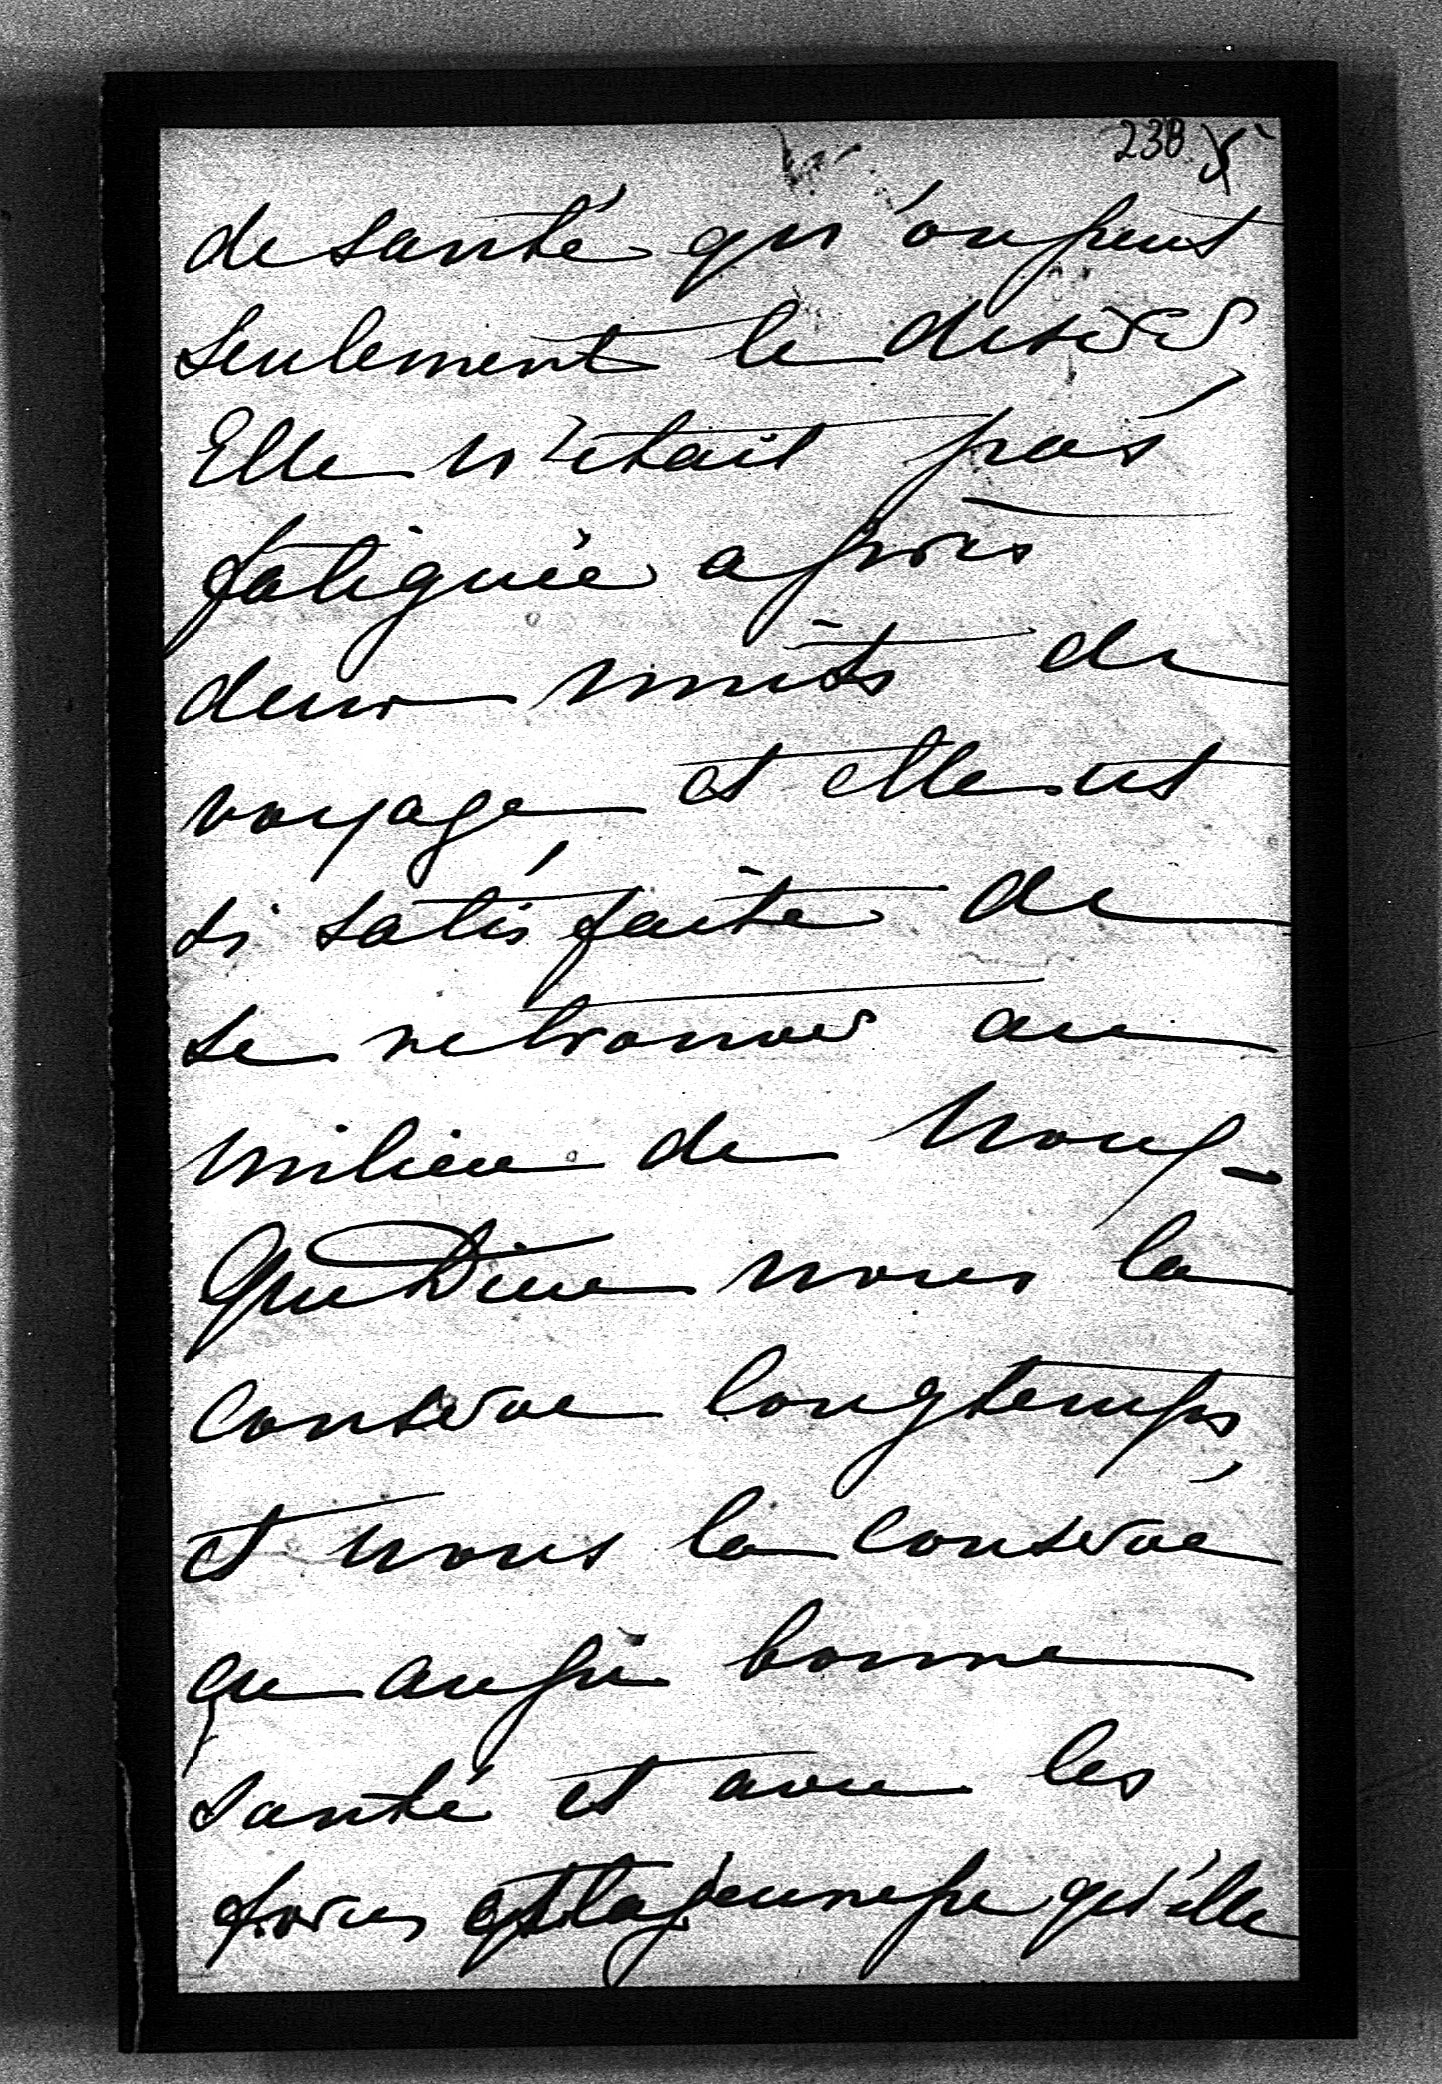 238
de santé qu'on peut
seulement le désirer,
Elle n'était pas
fatiguée après
deux nuits de
voyage et elle est
si satisfaite de
se retrouver au
milieu de nous -
Que Dieu nous la
conserve longtemps,
et nous la conserve
en aussi bonne
santé et avec les
forces et la jeunesse qu'elle